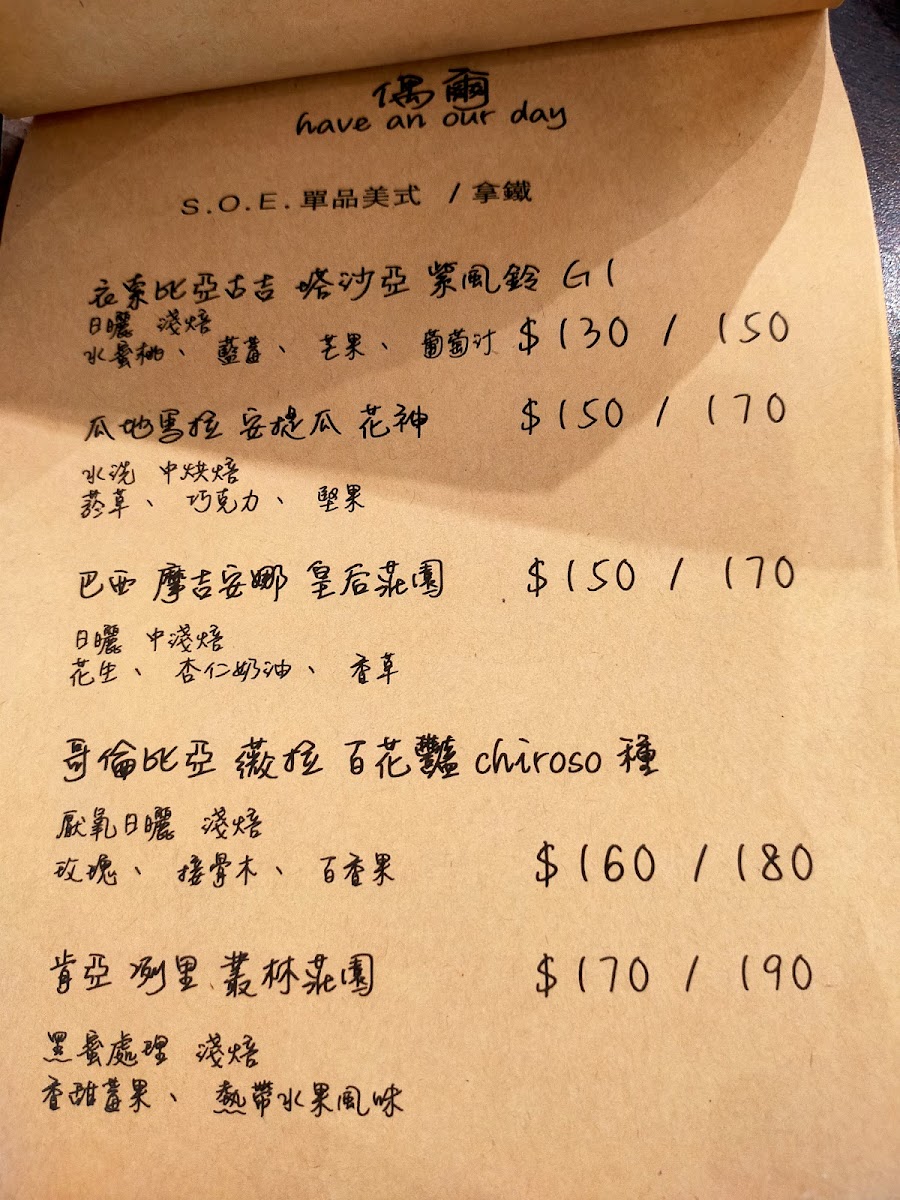 偶爾
have an our day
S.O.E.單品美式 / 拿鐵
衣索比亞古吉 塔沙亞 紫風鈴 G1
日曬 淺焙
水蜜桃、 藍莓、 芒果、 葡萄汁 $130 / 150
瓜地馬拉 安提瓜 花神 $150 / 170
水洗 中烘焙
菸草、 巧克力、 堅果
巴西 摩吉安娜 皇后莊園 $150 / 170
日曬 中淺焙
花生、 杏仁奶油、 香草
哥倫比亞 薇拉 百花豔 chiroso 種
厭氧日曬 淺焙
玫瑰、 接骨木、 百香果 $160 / 180
肯亞 冽里 叢林莊園 $170 / 190
黑蜜處理 淺焙
香甜莓果、 熱帶水果風味